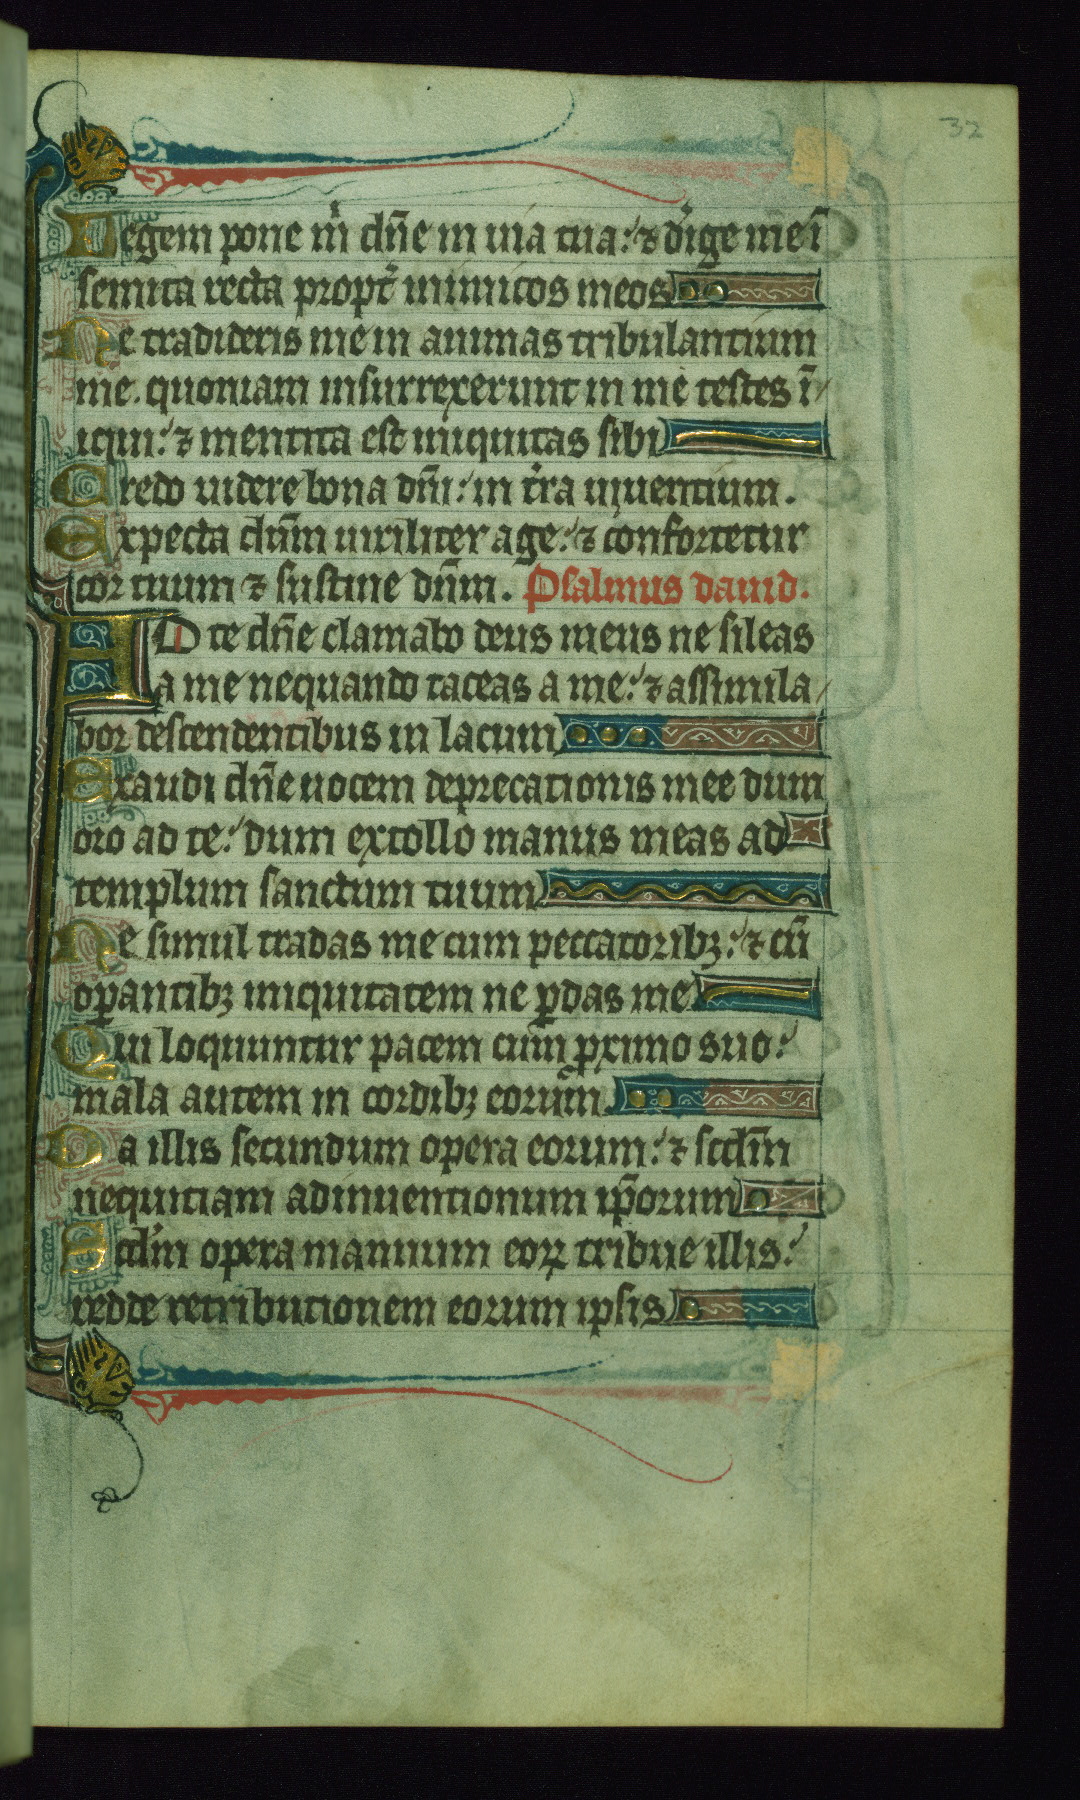 32
Legem pone m̉ dn̄e in uia tua: ⁊ dirige me ī
semita recta propt̉ inimicos meos
Ne tradideris me in animas tribulantium
me. quoniam insurrexerunt in me testes i/
iqui: ⁊ mentita est iniquitas sibi
Credo uidere bona dn̄i: in t̉ra uiuentium.
Expecta dn̄m uiriliter age: ⁊ confortetur
cor tuum ⁊ sustine dn̄m. Psalmus dauid.
AD te dn̄e clamabo deus meus ne sileas
a me nequando taceas a me: ⁊ assimila/
bor descendentibus in lacum
Exaudi dn̄e uocem deprecationis mee dum
oro ad te: dum extollo manus meas ad
templum sanctum tuum
Ne simul tradas me cum peccatoribꝫ: ⁊ cū
oꝑantibꝫ iniquitatem ne ꝑdas me
Qui loquuntur pacem cum ꝓximo suo:
mala autem in cordibꝫ eorum.
Da illis secundum opera eorum: ⁊ scdm̄
nequitiam adinuentionum ip̄orum
Scdm̄ opera manuum eoꝝ tribue illis:
redde retributionem eorum ipsis